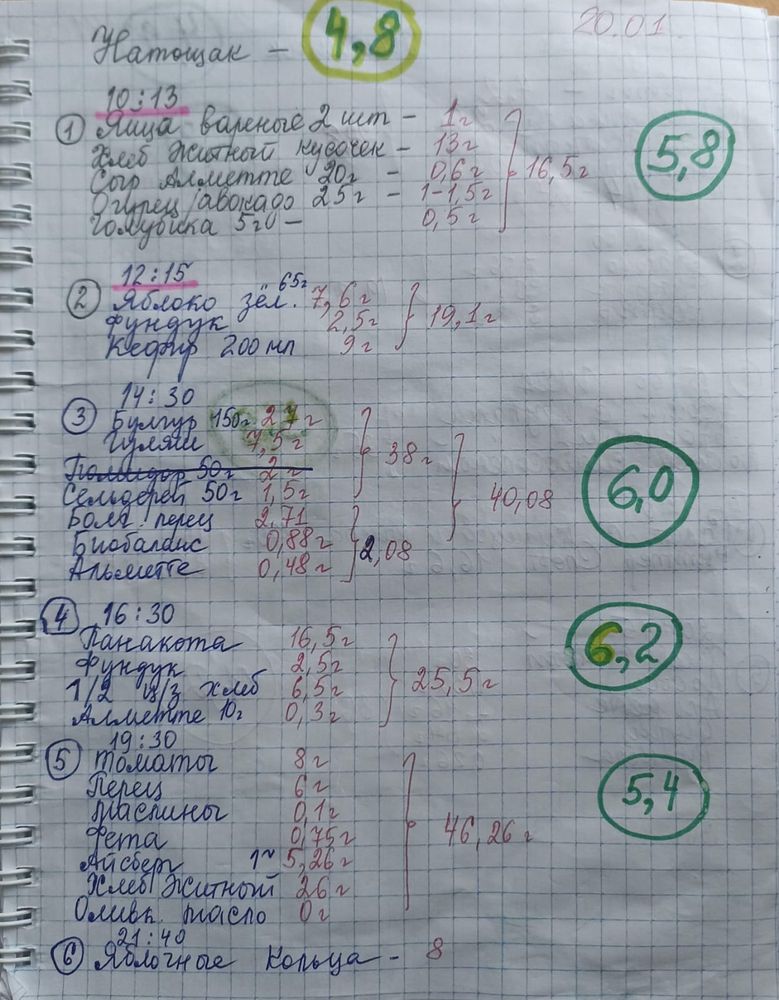 20.01
Натощак - 4,8
10:13
① Яйца вареные 2 шт - 1г
Хлеб Житный кусочек - 13г
Сыр Алметте 20г - 0,6г
Огурец/авокадо 25г - 1-1,5г
Голубика 5г - 0,5г
16,5г
5,8
12:15
② Яблоко зёл. 65г 7,6г
Фундук 2,5г
Кефир 200 мл 9г
19,1г
14:30
③ Булгур 150г 27г
Гуляш 7,5г
Помидор 50г 2г
Сельдерей 50г 1,5г
38г
Болг. перец 2,71
Биобаланс 0,88г
Альметте 0,48г
2,08
40,08
6,0
4 16:30
Панакота 16,5г
Фундук 2,5г
1/2 ц/з хлеб 6,5г
Алметте 10г 0,3г
25,5г
6,2
19:30
⑤ Томаты 8г
Перец 6г
Маслины 0,1г
Фета 0,75г
Айсберг 5,26г
Хлеб Житный 26г
Оливк. масло 0г
46,26г
5,4
21:40
⑥ Яблочные кольца - 8